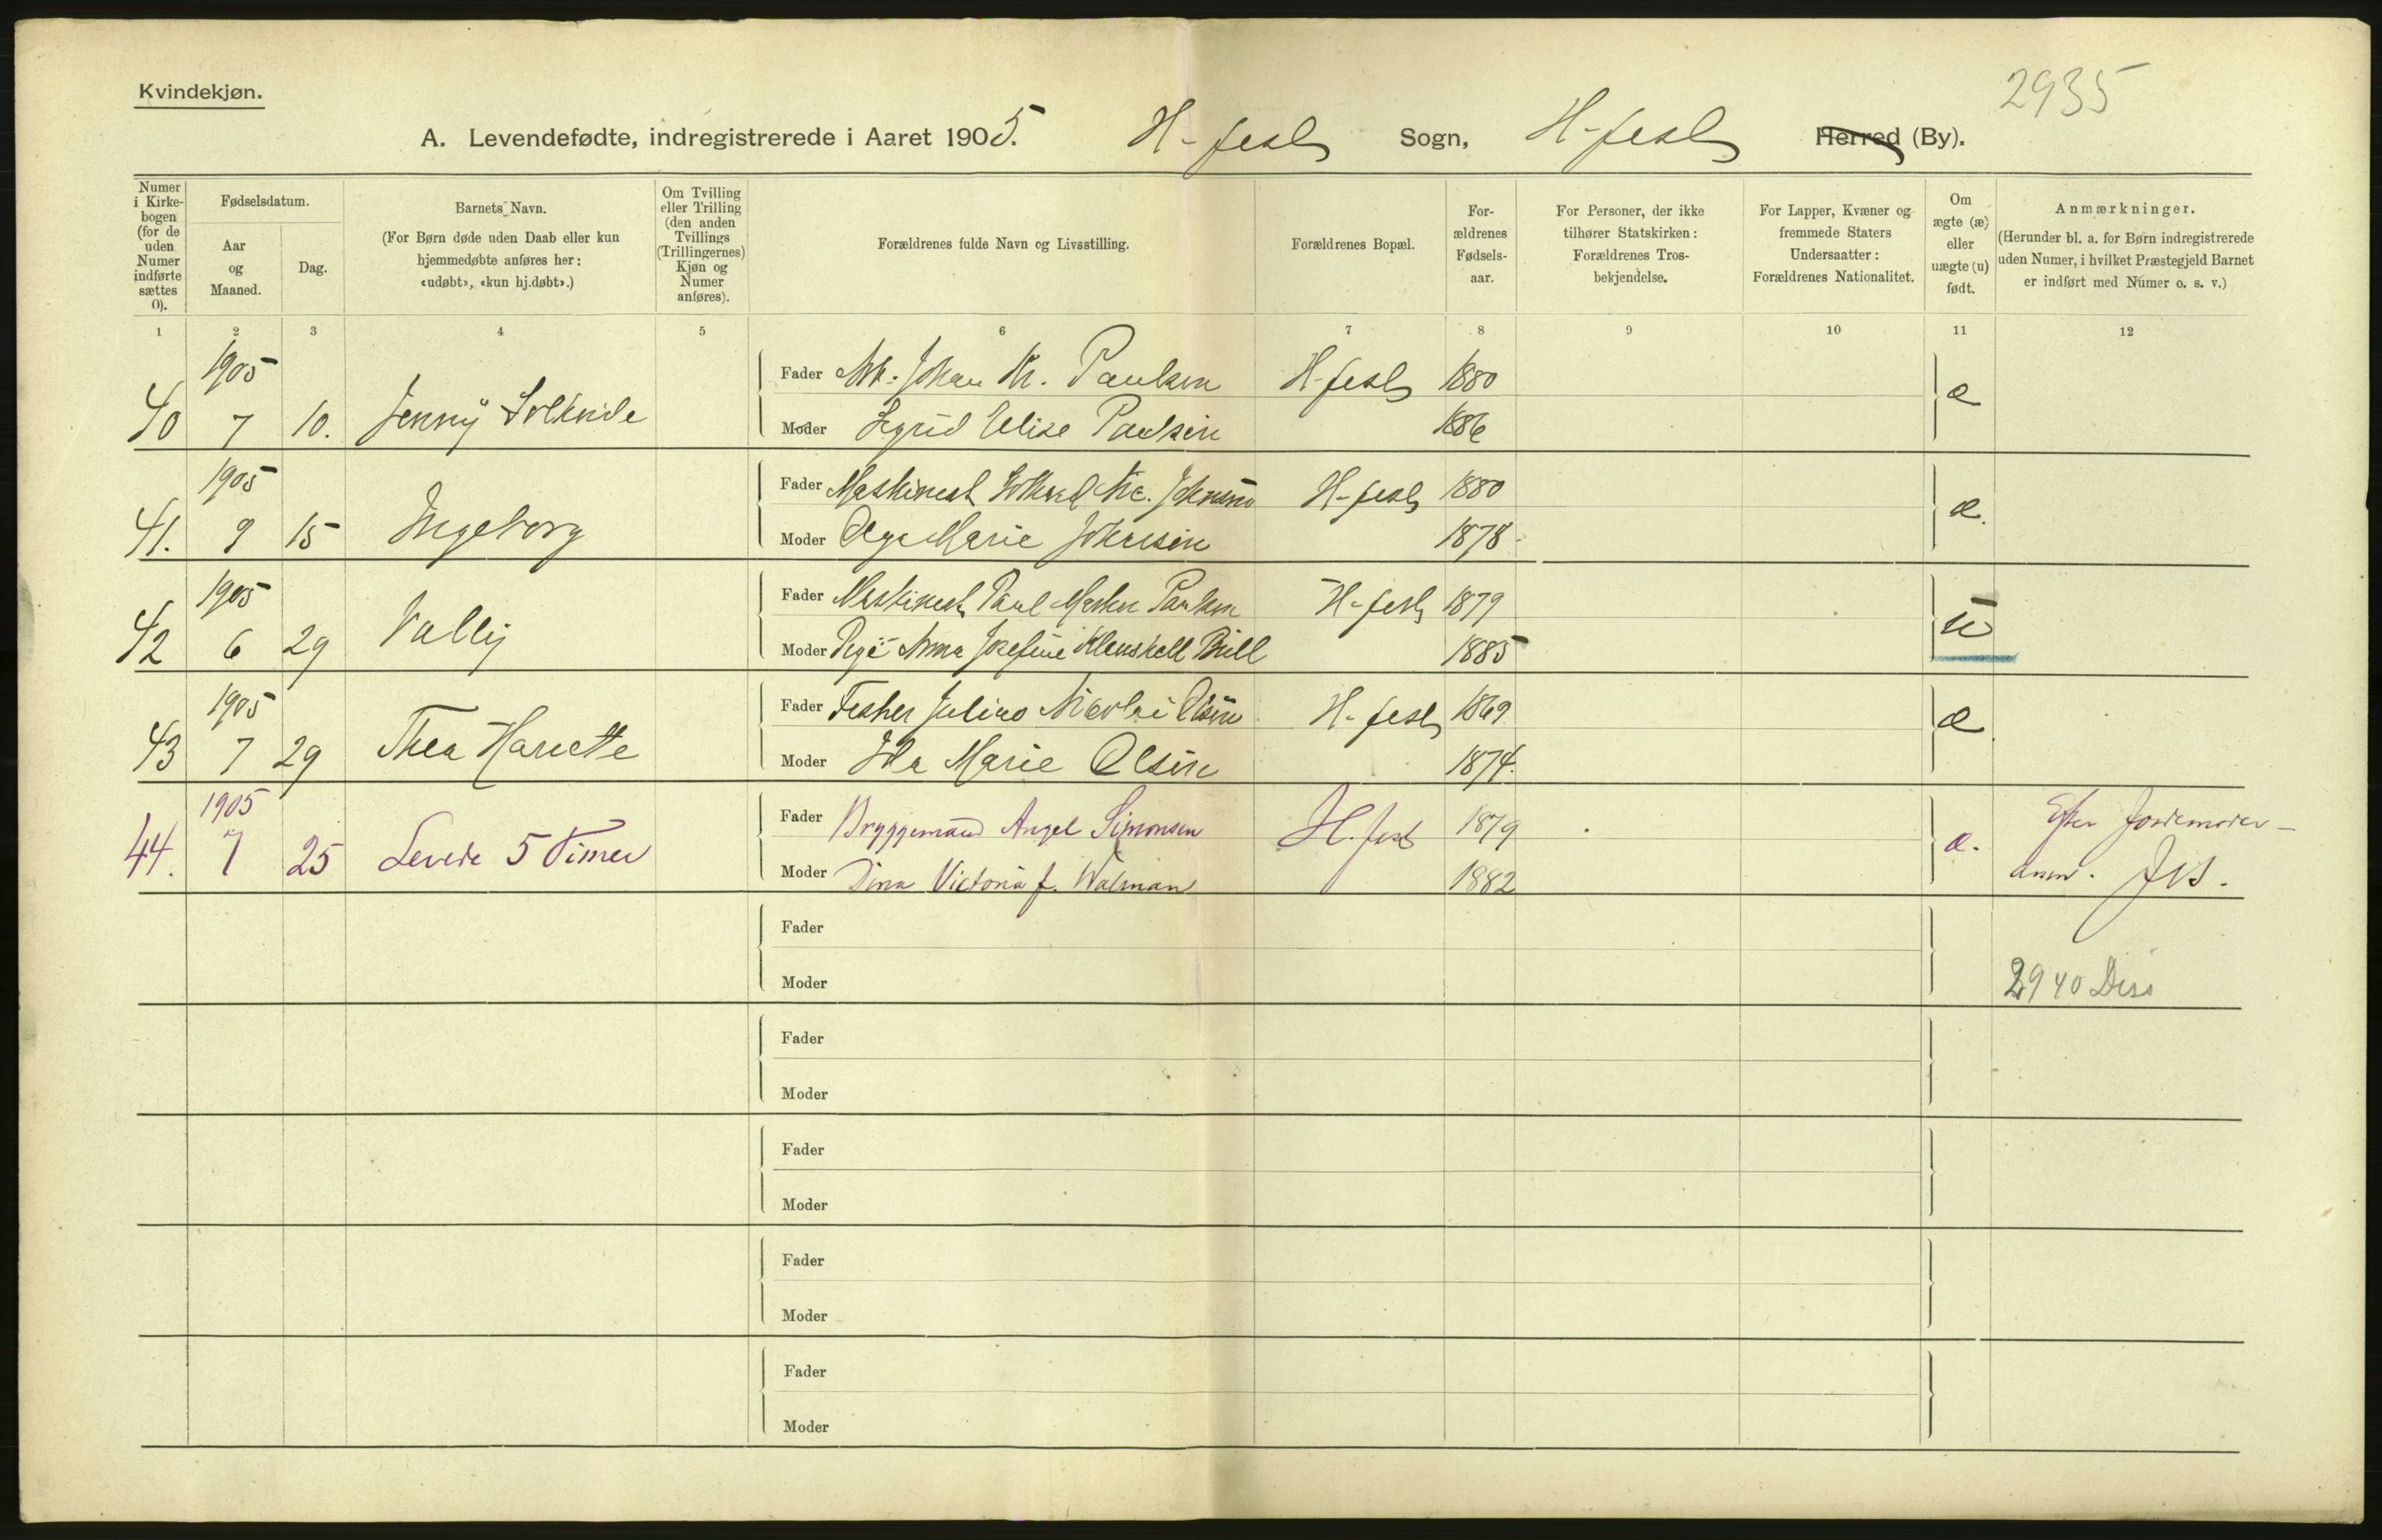 Kvindekjøn.
2935
A. Levendefødte, indregistrerede i Aaret 1905. H-fest Sogn, H-fest Herred (By).
Numer i Kirkebogen (for de uden Numer indførte sættes 0).
Fødselsdatum.
Aar og Maaned.
Dag.
Barnets Navn.
(For Børn døde uden Daab eller kun hjemmedøbte anføres her: «udøbt», «kun hj.døbt».)
Om Tvilling eller Trilling (den anden Tvillings (Trillingernes) Kjøn og Numer anføres).
Forældrenes fulde Navn og Livsstilling.
Forældrenes Bopæl.
Forældrenes Fødselsaar.
For Personer, der ikke tilhører Statskirken: Forældrenes Trosbekjendelse.
For Lapper, Kvæner og fremmede Staters Undersaatter: Forældrenes Nationalitet.
Om ægte (æ) eller uægte (u) født.
Anmærkninger.
(Herunder bl. a. for Børn indregistrerede uden Numer, i hvilket Præstegjeld Barnet er indført med Numer o. s. v.)
1 2 3 4 5 6 7 8 9 10 11 12
1905
Fader Johan Kr. Paulsen H-fest 1880
40 7 10. Jenny æ
Moder Sigrid Elise Paulsen 1886
1905
Fader Maskinist Johnsen H-fest 1880
41. 9 15 Ingeborg æ.
Moder Olga Marie Johnsen 1878
1905
Fader Maskinist Paul Paulsen H-fest 1879
42 6 29 Vally u
Moder Pige Anna Josefine Brill 1885
1905
Fader Fisker Julius Nicolai Olsen H-fest 1869
43 7 29 Thea Hariette æ
Moder Ida Marie Olsen 1874.
1905
Fader Bryggemand Angel Simonsen H.fest 1879
44. 7 25 Levede 5 Timer æ. Efter Jordemoder-
Moder Dina Victoria f. Walman 1882 anm.
Fader
Moder
2940 Diss
Fader
Moder
Fader
Moder
Fader
Moder
Fader
Moder